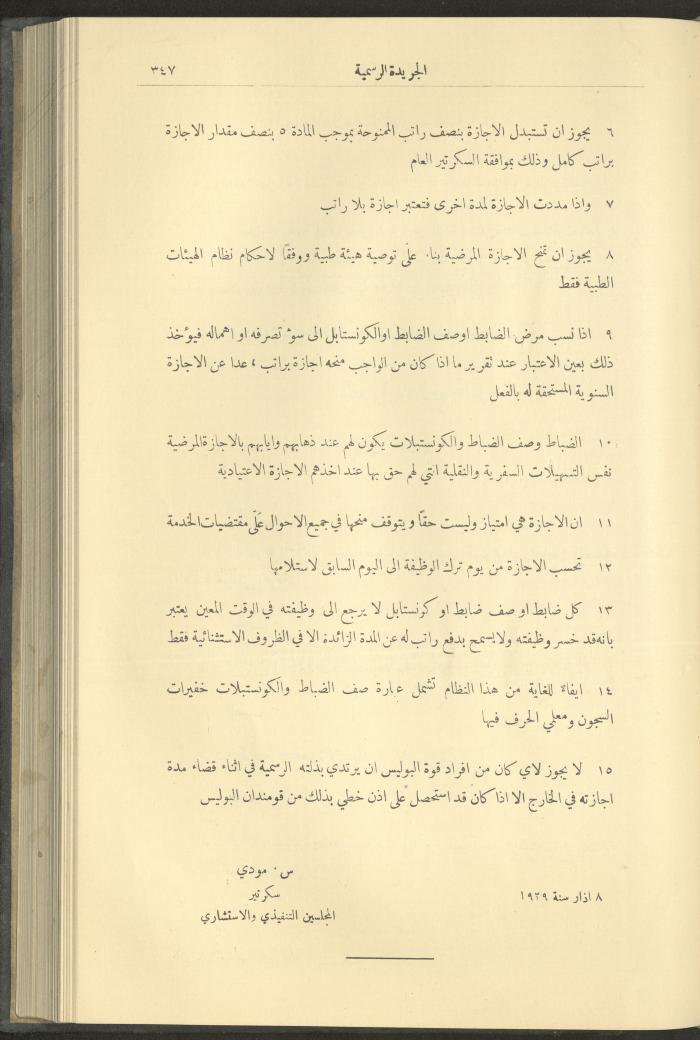 الجريدة الرسمية
٣٤٧
٦ يجوز ان تستبدل الاجازة بنصف راتب الممنوحة بموجب المادة ٥ بنصف مقدار الاجازة
براتب كامل وذلك بموافقة السكرتير العام
٧ واذا مددت الاجازة لمدة اخرى فتعتبر اجازة بلا راتب
٨ يجوز ان تمنح الاجازة المرضية بناء على توصية هيئة طبية ووفقاً لاحكام نظام الهيئات
الطبية فقط
٩ اذا نسب مرض الضابط اوصف الضابط اوالكونستابل الى سوء تصرفه او اهماله فيؤخذ
ذلك بعين الاعتبار عند تقرير ما اذا كان من الواجب منحه اجازة براتب ، عدا عن الاجازة
السنوية المستحقة له بالفعل
١٠ الضباط وصف الضباط والكونستبلات يكون لهم عند ذهابهم وايابهم بالاجازة المرضية
نفس التسهيلات السفرية والنقلية التي لهم حق بها عند اخذهم الاجازة الاعتيادية
١١ ان الاجازة هي امتياز وليست حقاً ويتوقف منحها في جميع الاحوال على مقتضيات الخدمة
١٢ تحسب الاجازة من يوم ترك الوظيفة الى اليوم السابق لاستلامها
١٣ كل ضابط او صف ضابط او كونستابل لا يرجع الى وظيفته في الوقت المعين يعتبر
بانه قد خسر وظيفته ولا يسمح بدفع راتب له عن المدة الزائدة الا في الظروف الاستثنائية فقط
١٤ ايفاءً للغاية من هذا النظام تشمل عبارة صف الضباط والكونستبلات خفيرات
السجون ومعلمي الحرف فيها
١٥ لا يجوز لاي كان من افراد قوة البوليس ان يرتدي بذلته الرسمية في اثناء قضاء مدة
اجازته في الخارج الا اذا كان قد استحصل على اذن خطي بذلك من قومندان البوليس
س . مودي
٨ اذار سنة ١٩٢٩
سكرتير
المجلسين التنفيذي والاستشاري